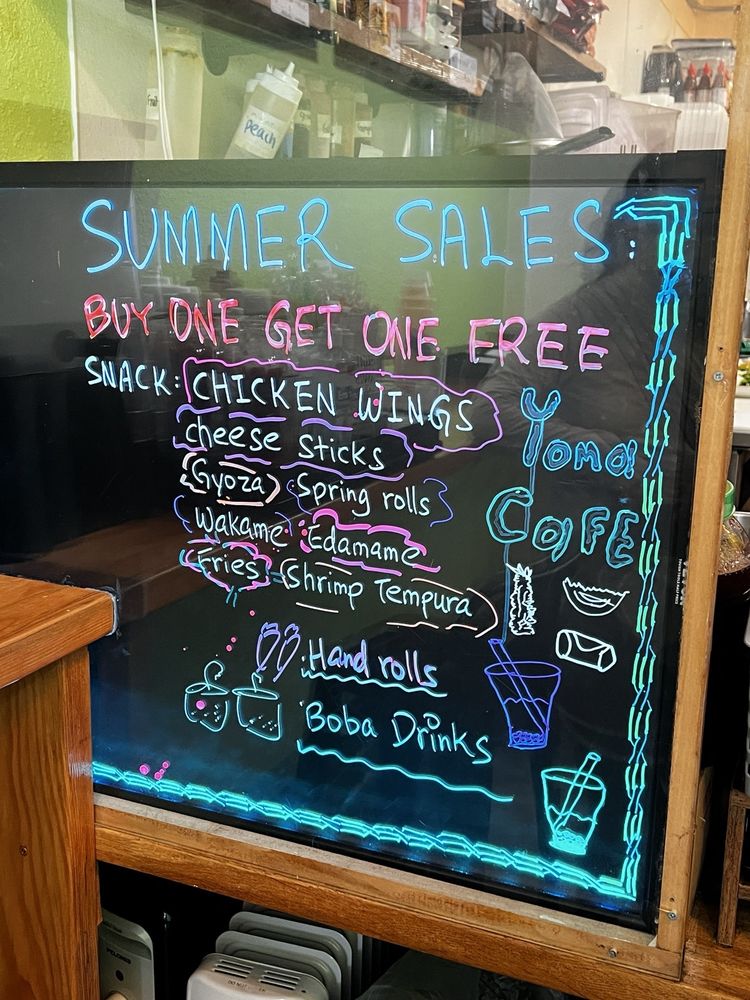 peach
SUMMER SALES:
BUY ONE GET ONE FREE
SNACK: CHICKEN WINGS
cheese Sticks
Gyoza Spring rolls
Wakame Edamame
Fries Shrimp Tempura
Yoma
CAFE
Hand rolls
Boba Drinks